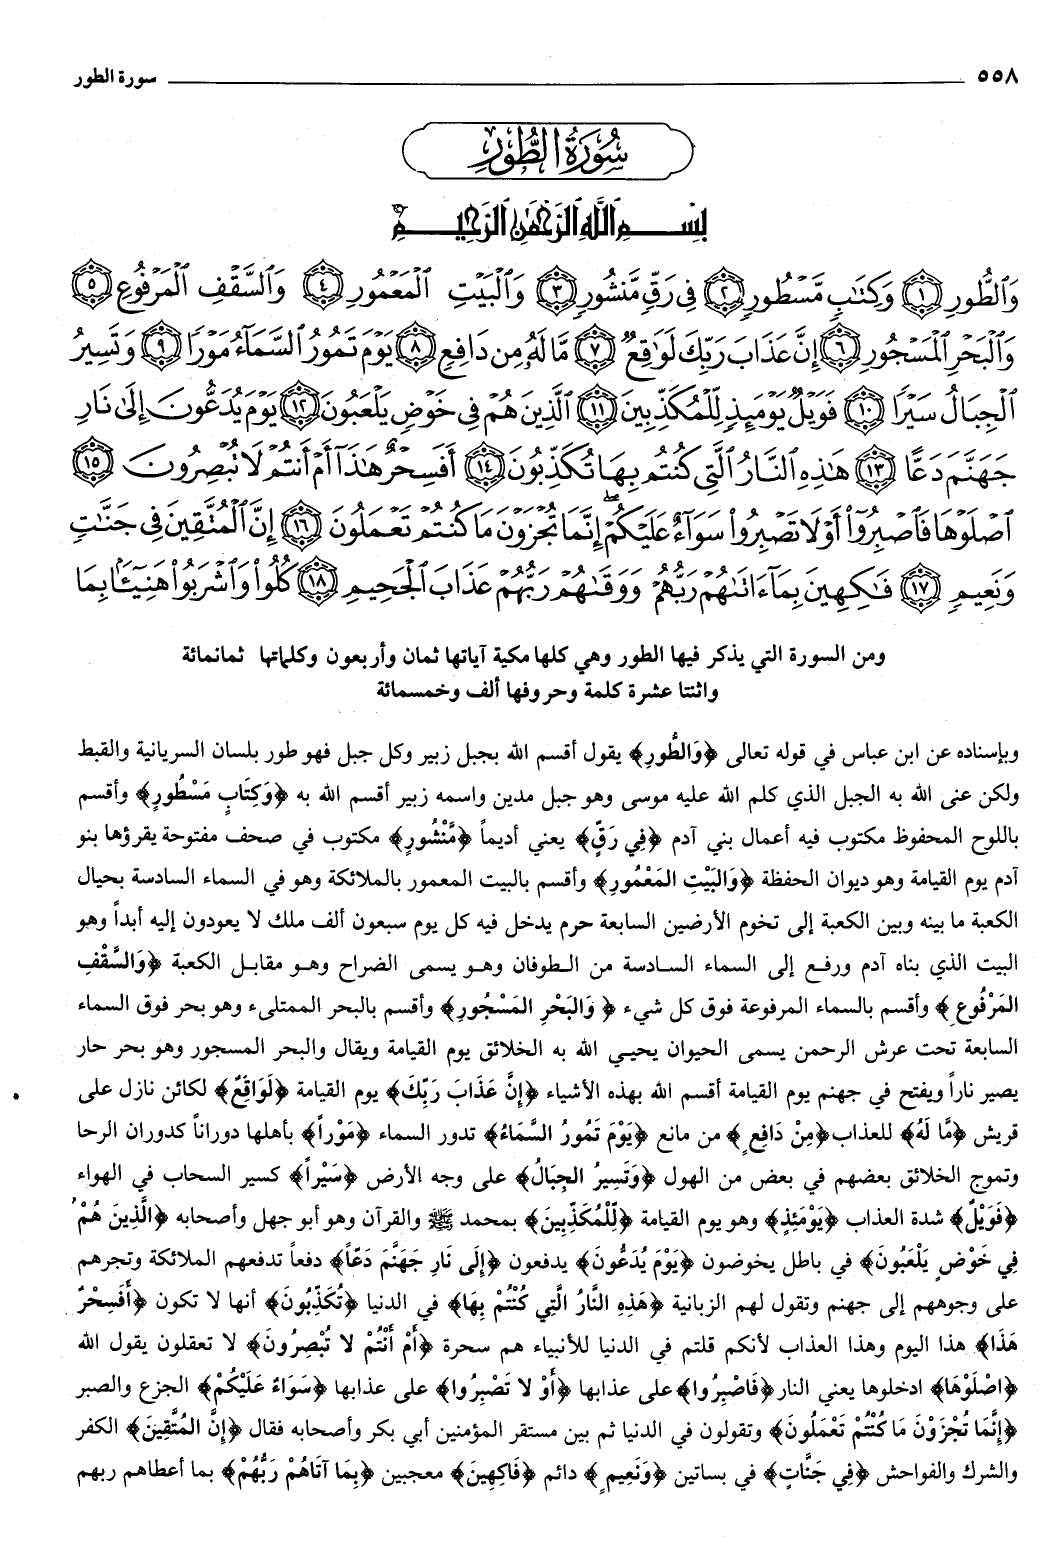 ٥٥٨ سورة الطور
سُورَةُ الطُّورِ
بِسْمِ اللَّهِ الرَّحْمَٰنِ الرَّحِيمِ
وَالطُّورِ ﴿١﴾ وَكِتَٰبٍ مَّسْطُورٍ ﴿٢﴾ فِي رَقٍّ مَّنشُورٍ ﴿٣﴾ وَالْبَيْتِ الْمَعْمُورِ ﴿٤﴾ وَالسَّقْفِ الْمَرْفُوعِ ﴿٥﴾
وَالْبَحْرِ الْمَسْجُورِ ﴿٦﴾ إِنَّ عَذَابَ رَبِّكَ لَوَٰقِعٌ ﴿٧﴾ مَّا لَهُۥ مِن دَافِعٍ ﴿٨﴾ يَوْمَ تَمُورُ السَّمَآءُ مَوْرًا ﴿٩﴾ وَتَسِيرُ
الْجِبَالُ سَيْرًا ﴿١٠﴾ فَوَيْلٌ يَوْمَئِذٍ لِّلْمُكَذِّبِينَ ﴿١١﴾ الَّذِينَ هُمْ فِي خَوْضٍ يَلْعَبُونَ ﴿١٢﴾ يَوْمَ يُدَعُّونَ إِلَىٰ نَارِ
جَهَنَّمَ دَعًّا ﴿١٣﴾ هَٰذِهِ النَّارُ الَّتِي كُنتُم بِهَا تُكَذِّبُونَ ﴿١٤﴾ أَفَسِحْرٌ هَٰذَآ أَمْ أَنتُمْ لَا تُبْصِرُونَ ﴿١٥﴾
اصْلَوْهَا فَاصْبِرُوٓا۟ أَوْ لَا تَصْبِرُوا۟ سَوَآءٌ عَلَيْكُمْ ۖ إِنَّمَا تُجْزَوْنَ مَا كُنتُمْ تَعْمَلُونَ ﴿١٦﴾ إِنَّ الْمُتَّقِينَ فِي جَنَّٰتٍ
وَنَعِيمٍ ﴿١٧﴾ فَٰكِهِينَ بِمَآ ءَاتَىٰهُمْ رَبُّهُمْ وَوَقَىٰهُمْ رَبُّهُمْ عَذَابَ الْجَحِيمِ ﴿١٨﴾ كُلُوا۟ وَاشْرَبُوا۟ هَنِيٓـًٔا بِمَا
ومن السورة التي يذكر فيها الطور وهي كلها مكية آياتها ثمان وأربعون وكلماتها ثمانمائة
واثنتا عشرة كلمة وحروفها ألف وخمسمائة
وبإسناده عن ابن عباس في قوله تعالى ﴿وَالطُّورِ﴾ يقول أقسم الله بجبل زبير وكل جبل فهو طور بلسان السريانية والقبط
ولكن عنى الله به الجبل الذي كلم الله عليه موسى وهو جبل مدين واسمه زبير أقسم الله به ﴿وَكِتَابٍ مَسْطُورٍ﴾ وأقسم
باللوح المحفوظ مكتوب فيه أعمال بني آدم ﴿فِي رَقٍّ﴾ يعني أديماً ﴿مَّنْشُورٍ﴾ مكتوب في صحف مفتوحة يقرؤها بنو
آدم يوم القيامة وهو ديوان الحفظة ﴿وَالبَيْتِ المَعْمُورِ﴾ وأقسم بالبيت المعمور بالملائكة وهو في السماء السادسة بحيال
الكعبة ما بينه وبين الكعبة إلى تخوم الأرضين السابعة حرم يدخل فيه كل يوم سبعون ألف ملك لا يعودون إليه أبداً وهو
البيت الذي بناه آدم ورفع إلى السماء السادسة من الطوفان وهو يسمى الضراح وهو مقابل الكعبة ﴿وَالسَّقْفِ
المَرْفُوعِ﴾ وأقسم بالسماء المرفوعة فوق كل شيء ﴿وَالبَحْرِ المَسْجُورِ﴾ وأقسم بالبحر الممتلىء وهو بحر فوق السماء
السابعة تحت عرش الرحمن يسمى الحيوان يحيي الله به الخلائق يوم القيامة ويقال والبحر المسجور وهو بحر حار
يصير ناراً ويفتح في جهنم يوم القيامة أقسم الله بهذه الأشياء ﴿إِنَّ عَذَابَ رَبِّكَ﴾ يوم القيامة ﴿لَوَاقِعٌ﴾ لكائن نازل على
قريش ﴿مَّا لَهُ﴾ للعذاب﴿مِنْ دَافِعٍ﴾ من مانع ﴿يَوْمَ تَمُورُ السَّمَاءُ﴾ تدور السماء ﴿مَوْراً﴾ بأهلها دوراناً كدوران الرحا
وتموج الخلائق بعضهم في بعض من الهول ﴿وَتَسِيرُ الجِبَالُ﴾ على وجه الأرض ﴿سَيْراً﴾ كسير السحاب في الهواء
﴿فَوَيْلٌ﴾ شدة العذاب ﴿يَوْمَئِذٍ﴾ وهو يوم القيامة ﴿لِّلْمُكَذِّبِينَ﴾ بمحمد ﷺ والقرآن وهو أبو جهل وأصحابه ﴿الَّذِينَ هُمْ
فِي خَوْضٍ يَلْعَبُونَ﴾ في باطل يخوضون ﴿يَوْمَ يُدَعُّونَ﴾ يدفعون ﴿إِلَى نَارِ جَهَنَّمَ دَعّاً﴾ دفعاً تدفعهم الملائكة وتجرهم
على وجوههم إلى جهنم وتقول لهم الزبانية ﴿هَذِهِ النَّارُ الَّتِي كُنْتُمْ بِهَا﴾ في الدنيا ﴿تُكَذِّبُونَ﴾ أنها لا تكون ﴿أَفَسِحْرٌ
هَذَا﴾ هذا اليوم وهذا العذاب لأنكم قلتم في الدنيا للأنبياء هم سحرة ﴿أَمْ أَنْتُمْ لا تُبْصِرُونَ﴾ لا تعقلون يقول الله
﴿اصْلَوْهَا﴾ ادخلوها يعني النار﴿فَاصْبِرُوا﴾على عذابها ﴿أَوْ لا تَصْبِرُوا﴾ على عذابها ﴿سَوَاءٌ عَلَيْكُمْ﴾ الجزع والصبر
﴿إِنَّمَا تُجْزَوْنَ مَا كُنْتُمْ تَعْمَلُونَ﴾ وتقولون في الدنيا ثم بين مستقر المؤمنين أبي بكر وأصحابه فقال ﴿إِنَّ المُتَّقِينَ﴾ الكفر
والشرك والفواحش ﴿فِي جَنَّاتٍ﴾ في بساتين ﴿وَنَعِيمٍ﴾ دائم ﴿فَاكِهِينَ﴾ معجبين ﴿بِمَا آتَاهُمْ رَبُّهُمْ﴾ بما أعطاهم ربهم